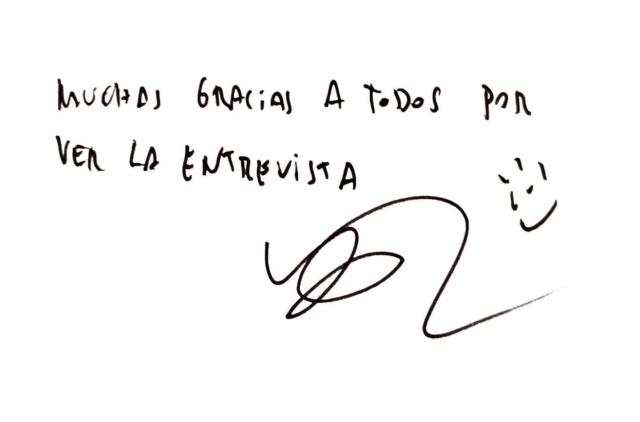 MUCHAS GRACIAS A TODOS POR
VER LA ENTREVISTA